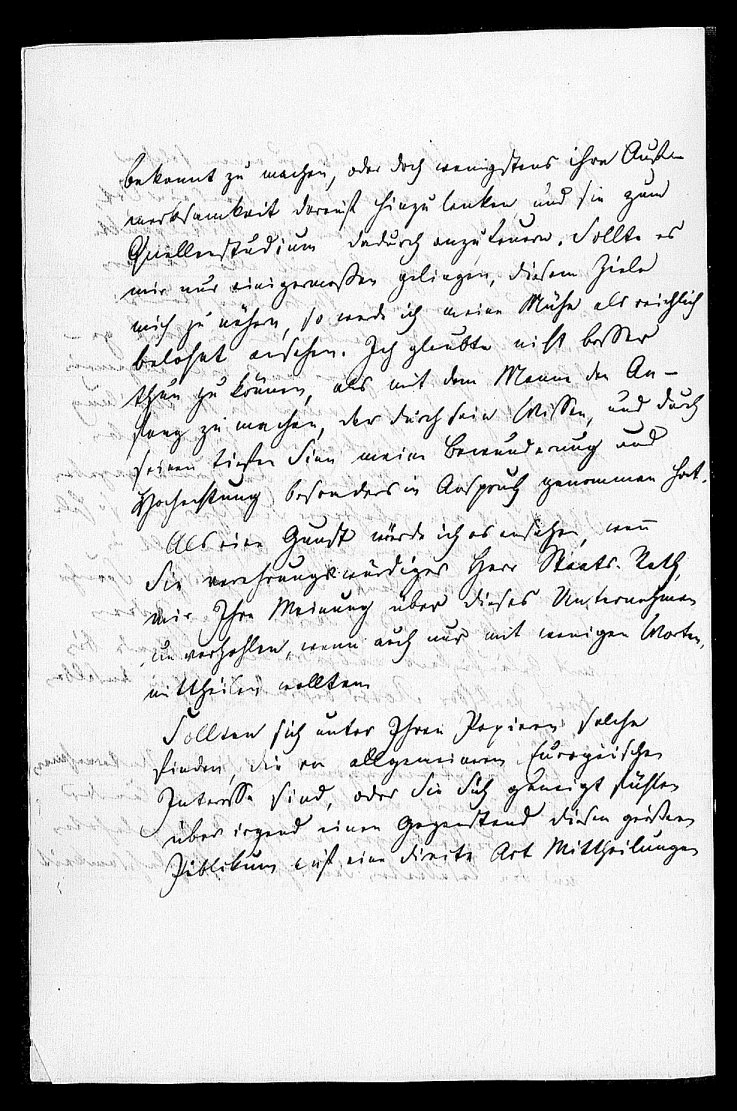 bekannt zu machen, oder doch wenigstens ihre Auf-
merksamkeit darauf hinzulenken und sie zum
Quellenstudium dadurch anzufeuern. Sollte es
mir nur einigermassen gelingen, diesem Ziele
mich zu nähern, so werde ich meine Mühe als reichlich
belohnt ansehen. Ich glaubte nicht besser
thun zu können, als mit dem Manne den An-
fang zu machen, der durch sein Wissen, und durch
seinen tiefen Sinn meine Bewunderung und
Hochachtung besonders in Anspruch genommen hat.
Als eine Gunst würde ich es ansehen, wenn
Sie verehrungswürdiger Herr Staats-Rath,
mir Ihre Meinung über dieses Unternehmen
unverhohlen, wenn auch nur mit wenigen Worten,
mittheilen wollten.
Sollten sich unter Ihren Papieren solche
finden, die von allgemeinem Europäischen
Interesse sind, oder Sie sich geneigt fühlen
über irgend einen Gegenstand diesem größern
Publikum auf eine direkte Art Mittheilungen